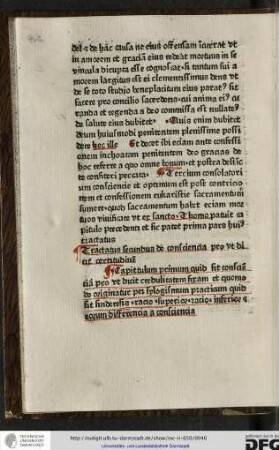 del et de hāc causa ne eius offensam īcurrat vt
in amorem et graciā eius redeat mortuum in se
vincula dirupta esse cognoscat si tantum sui a
morem largitus est ei clementissimus deus vt
de se toto studio beneplacitum eius parat? sit
sacere pro concilio sacerdotis cui anima ei? cu
randa et regenda a deo commissa est nullaten?
de salute eius dubitet Quis enim dubitet
deum huiusmodi penitentem plenissime possi
dere hec ille Et docet ibi eciam ante confessi
onem inchoatam penitentem deo gracias de
hoc referre a quo omne bonum et postea desiste
re consiteri peccata Tercium consolatori
um consciencie et optimum est post contricio
nem et confessionem eukaristie sacramentum
sumere quod sacramentum habet eciam mor
tuos viuificare vt ex sancto Thoma patuit ca
pitulo precedenti et sic patet prima pars hui?
tractatus
Tractatus secundus de consciencia pro vt di
cit certitudinē
Capitulum primum quid sit consciē
cia pro vt dicit credulitatem firam et quomo
do originatur per sylogismum practicum quid
sit sinderesis racio superior racio inferior et
eorum differencia a consciencia
http://tudigit.ulb.tu-darmstadt.de/show/inc-ii-650/0046
Universitäts- und Landesbibliothek Darmstadt